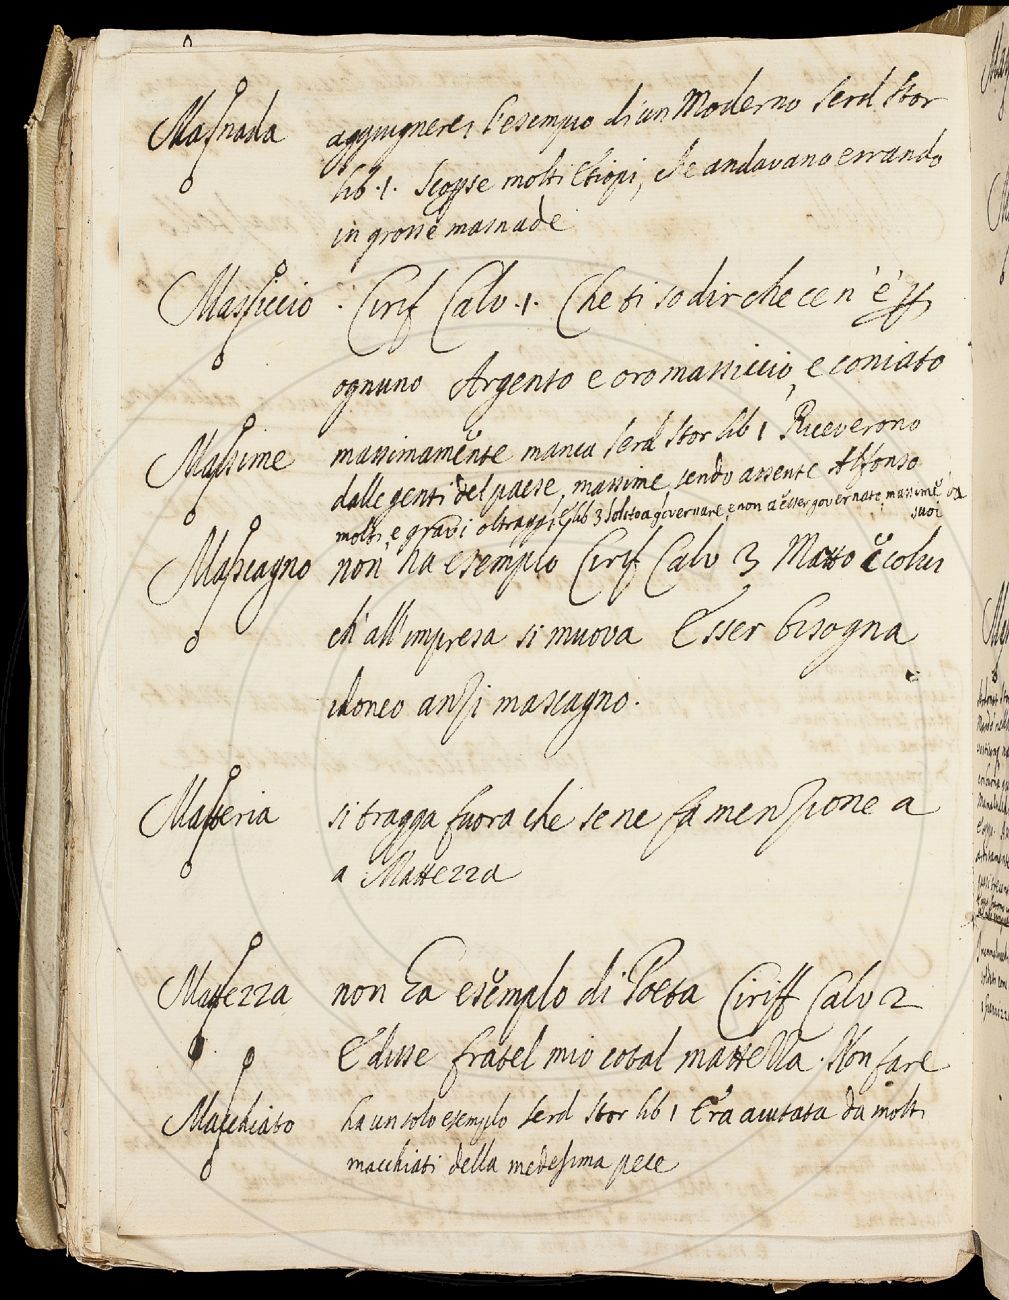 Masnada aggiugnere, l'esempio di un Moderno Serd Stor
lib. 1. Scopse molti Etiopi, che andavano errando
in grosse masnade
Massiccio . Cirif Calv. 1. Che ti so dir che ce n'è
ognuno Argento e oro massiccio, e coniato
Massime massimamẽnte manca Serd Stor lib 1 Riceverono
dalle genti del paese, massime sendo assente Alfonso
molti, e gravi oltraggi lib 3 solito a governare, e non a esser governate massimẽ da
suoi
Mascagno non ha esemplo Cirif Calv 3 Matto è colui
ch'all'impresa si muova Esser bisogna
idoneo anzi mascagno.
Matteria si tragga fuora che se ne fa menzione a
a Mattezza
Mattezza non ha esẽmplo di Poeta Ciriff Calv 2
E disse fratel mio cotal mattezza. Non fare
Macchiato ha un solo esemplo Serd Stor lib 1 Era aiutata da molti
macchiati della medesima pece